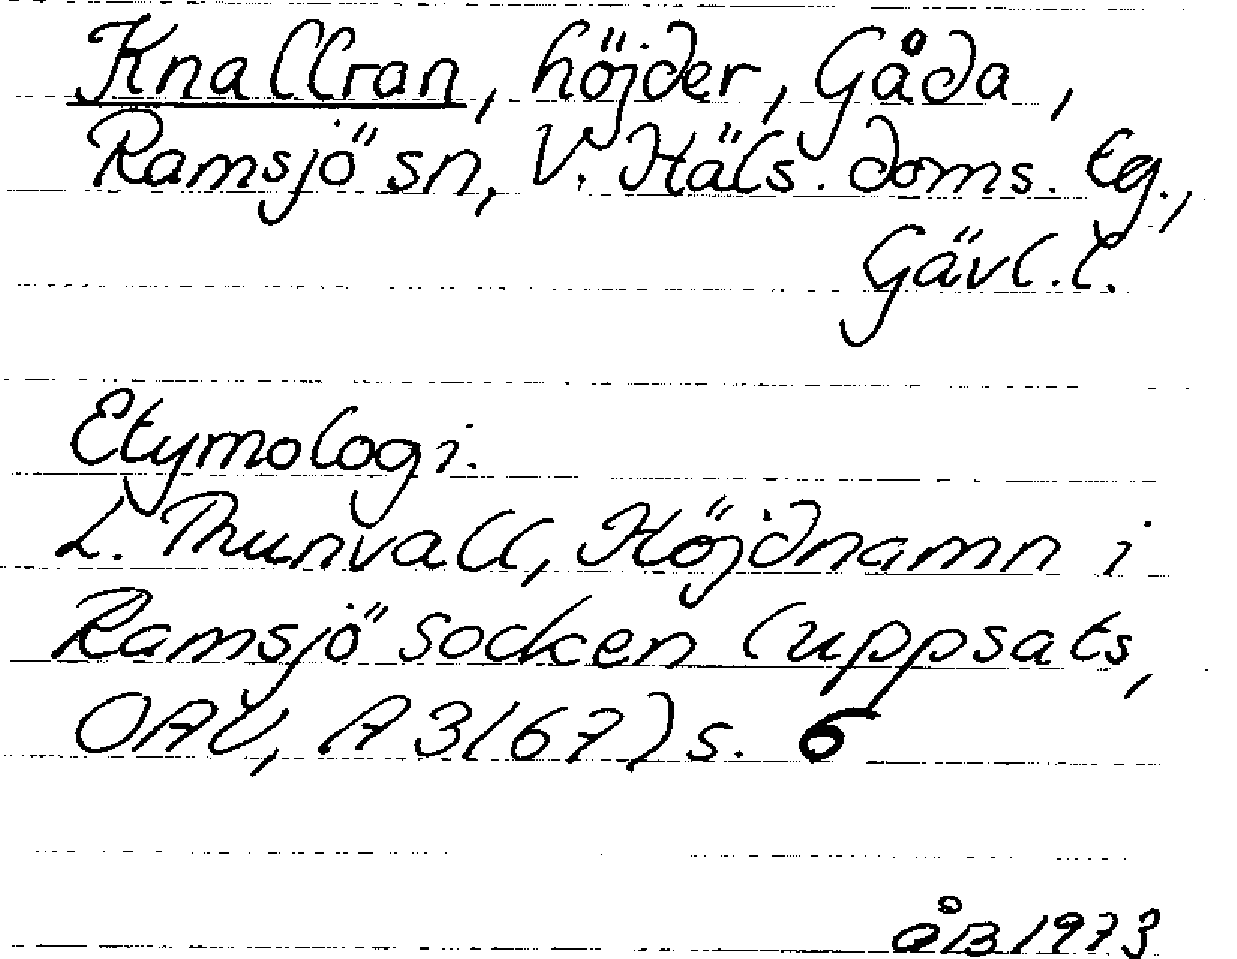 Knallran, höjder, Gåda,
Ramsjö sn, V. Häls. doms. tg.,
Gävl. l.
Etymologi.
L. Thunvall, Höjdnamn i
Ramsjö socken (uppsats,
OAU, A 3167) s. 6
åB 1973